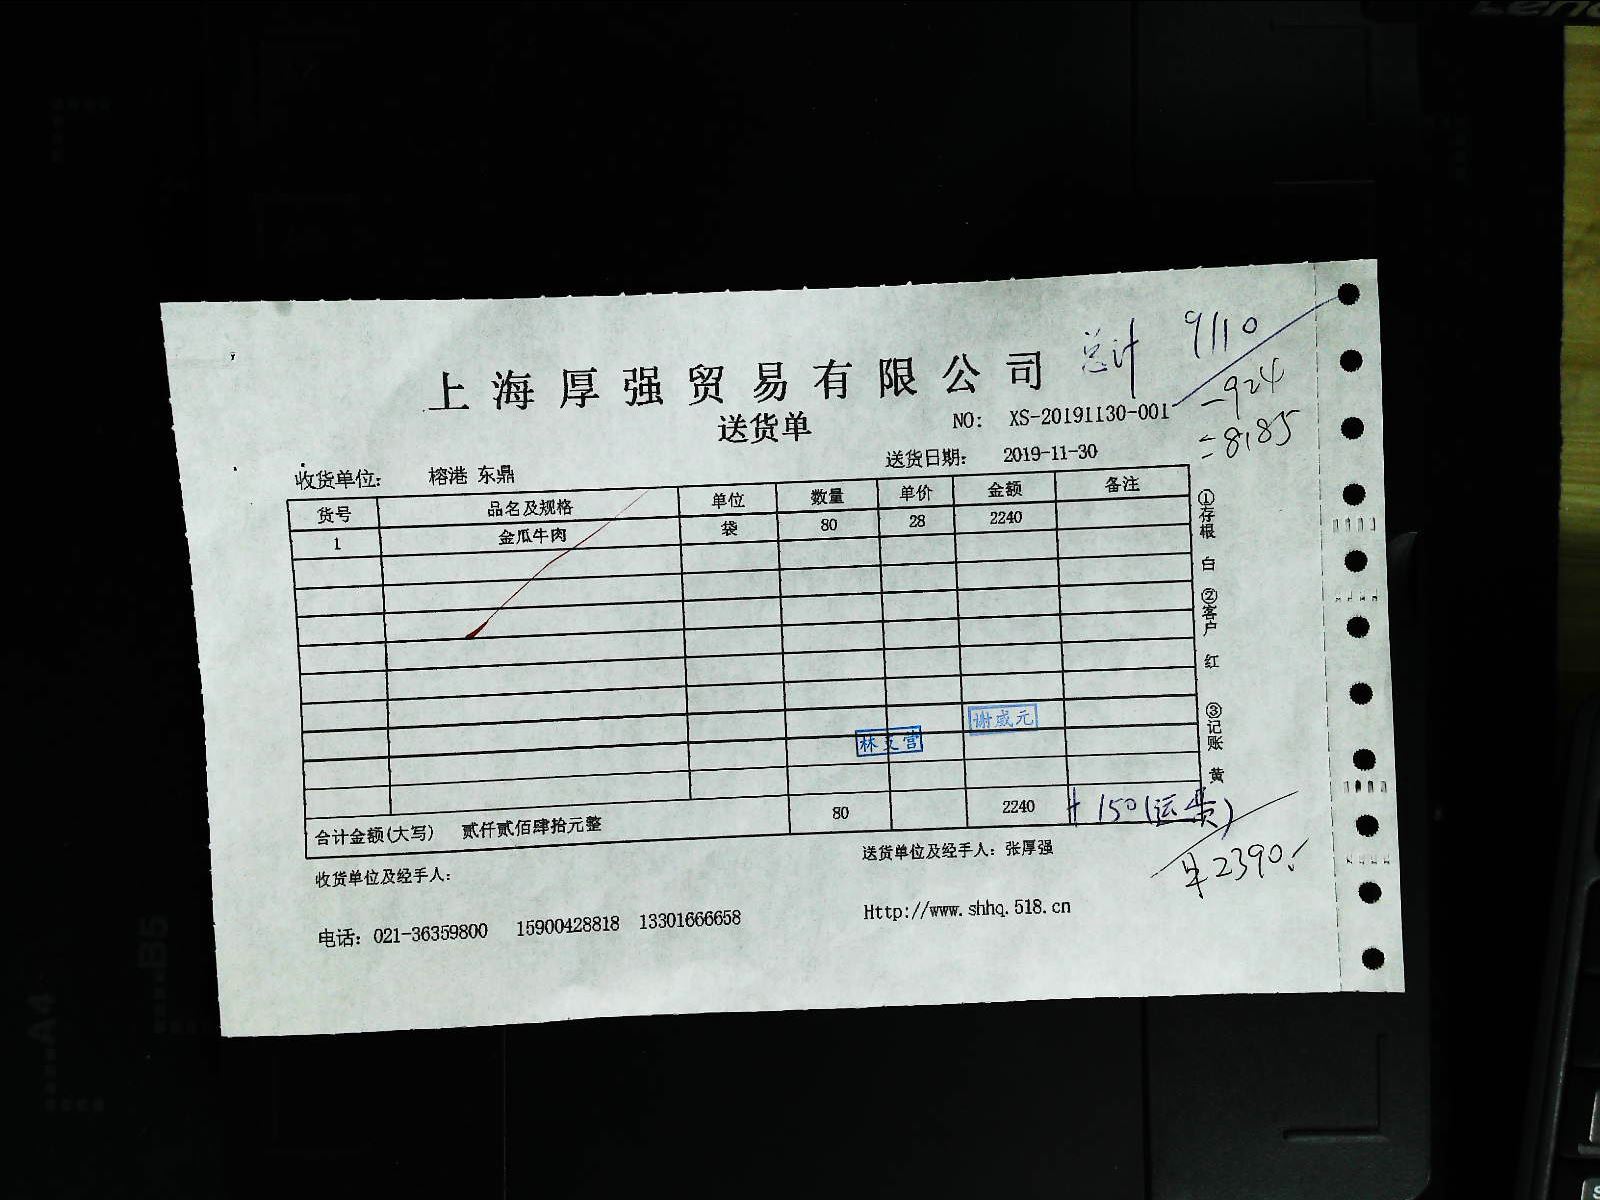 上海厚强贸易有限公司
总计 9110
-924
=8185
送货单
NO: XS-20191130-001
收货单位: 榕港 东鼎
送货日期: 2019-11-30
货号 品名及规格 单位 数量 单价 金额 备注
1 金瓜牛肉 袋 80 28 2240
谢威元
合计金额(大写) 贰仟贰佰肆拾元整 80 2240 +150(运费)
2390.
收货单位及经手人:
送货单位及经手人: 张厚强
电话: 021-36359800 15900428818 13301666658
Http://www.shhq.518.cn
①存根 白 ②客户 红 ③记账 黄
B5
A4